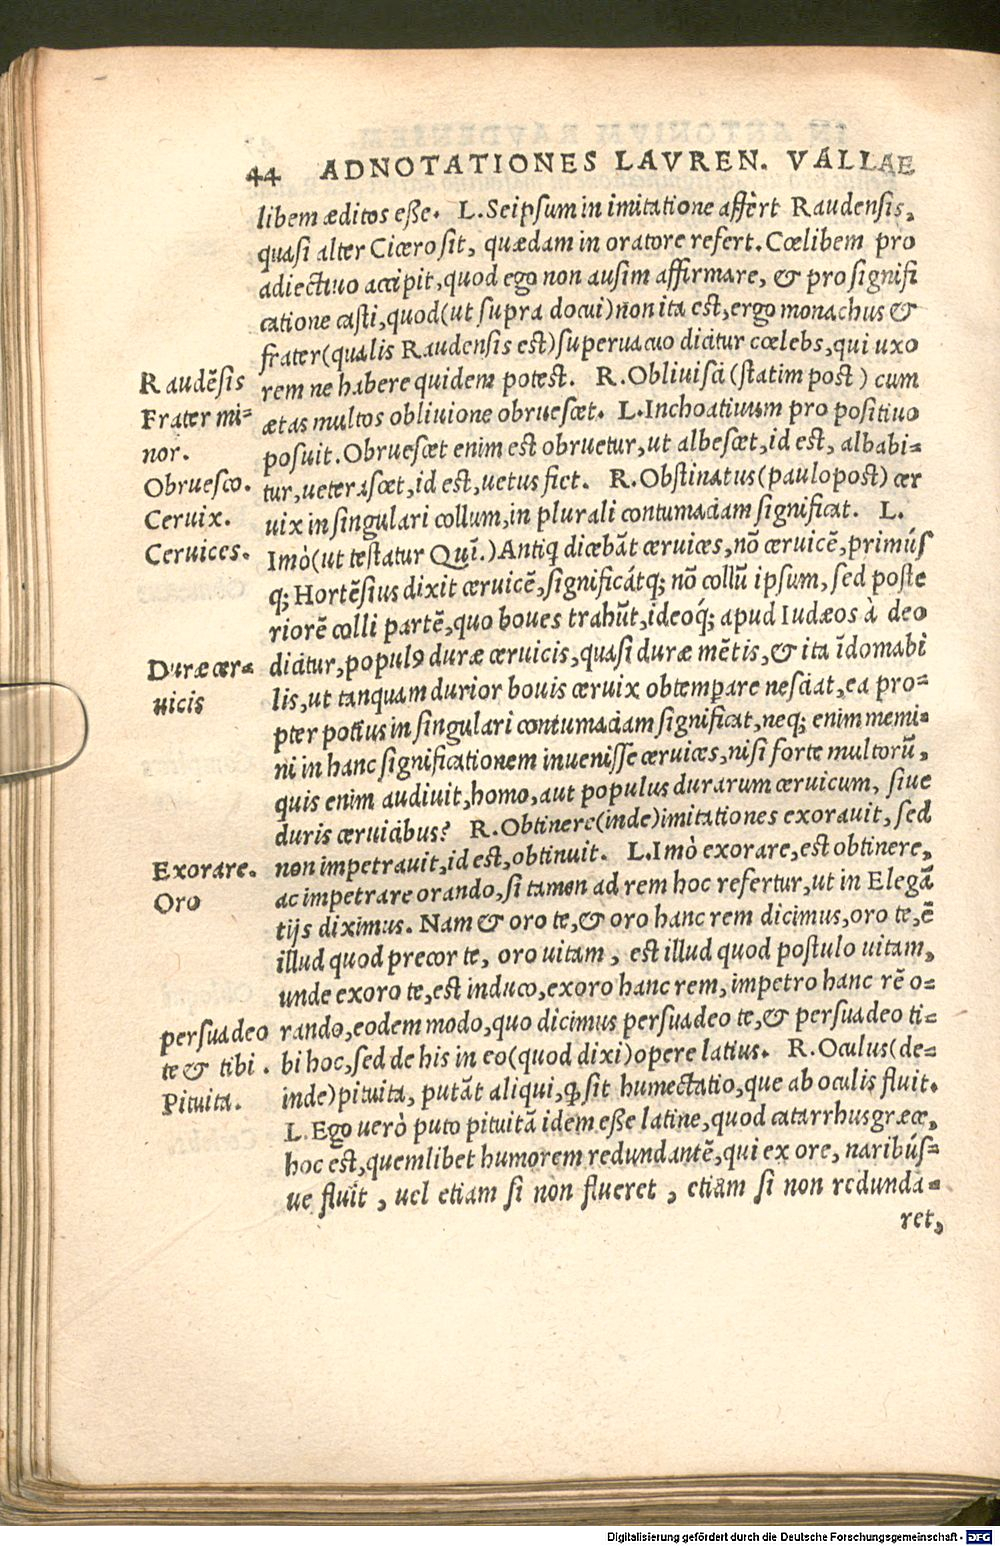 44 ADNOTATIONES LAVREN. VALLAE
libem æditos eſſe. L. Seipsum in imitatione affèrt Raudensis,
quasi alter Cicero sit, quædam in oratore refert. Cœlibem pro
adiectiuo accipit, quod ego non ausim affirmare, & pro signifi
catione casti, quod (ut supra docui) non ita est, ergo monachus &
frater (qualis Raudensis est) superuacuo dicitur cœlebs, qui uxo
Raudēsis
rem ne habere quidem potest. R. Obliuisci (statim post) cum
Frater mi-
ætas multos obliuione obruescet. L. Inchoatiuum pro positiuo
nor.
posuit. Obruescet enim est obruetur, ut albescet, id est, albabi-
Obruesco.
tur, ueterascet, id est, uetus fiet. R. Obstinatus (paulo post) cer
Ceruix.
uix in singulari collum, in plurali contumaciam significat. L.
Ceruices.
Imò (ut testatur Quī.) Antiq dicebāt ceruices, nō ceruicē, primúſ
q; Hortēsius dixit ceruicē, significátq; nō collū ipsum, sed poste
riorē colli partē, quo boues trahūt, ideoq́; apud Iudæos à deo
Duræ cer-
dicitur, populꝰ duræ ceruicis, quasi duræ mētis, & ita īdomabi
uicis
lis, ut tanquam durior bouis ceruix obtemꝑare nesciat, ea pro-
pter potius in singulari contumaciam significat, neq; enim memi-
ni in hanc significationem inuenisse ceruices, nisi forte multorū,
quis enim audiuit, homo, aut populus durarum ceruicum, siue
duris ceruicibus? R. Obtinere (inde) imitationes exorauit, sed
Exorare.
non impetrauit, id est, obtinuit. L. Imò exorare, est obtinere,
Oro
ac impetrare orando, si tamen ad rem hoc refertur, ut in Elegā
tijs diximus. Nam & oro te, & oro hanc rem dicimus, oro te, ē
illud quod precor te, oro uitam, est illud quod postulo uitam,
unde exoro te, est induco, exoro hanc rem, impetro hanc rē o-
persuadeo
rando, eodem modo, quo dicimus persuadeo te, & persuadeo ti-
te & tibi.
bi hoc, sed de his in eo (quod dixi) opere latius. R. Oculus (de-
Pituita.
inde) pituita, putāt aliqui, ꝙ sit humectatio, que ab oculis fluit.
L. Ego uerò puto pituitā idem eſſe latine, quod catarrhus græce,
hoc est, quemlibet humorem redundantē, qui ex ore, naribúſ-
ue fluit, uel etiam si non flueret, etiam si non redunda-
ret,
Digitalisierung gefördert durch die Deutsche Forschungsgemeinschaft - DFG